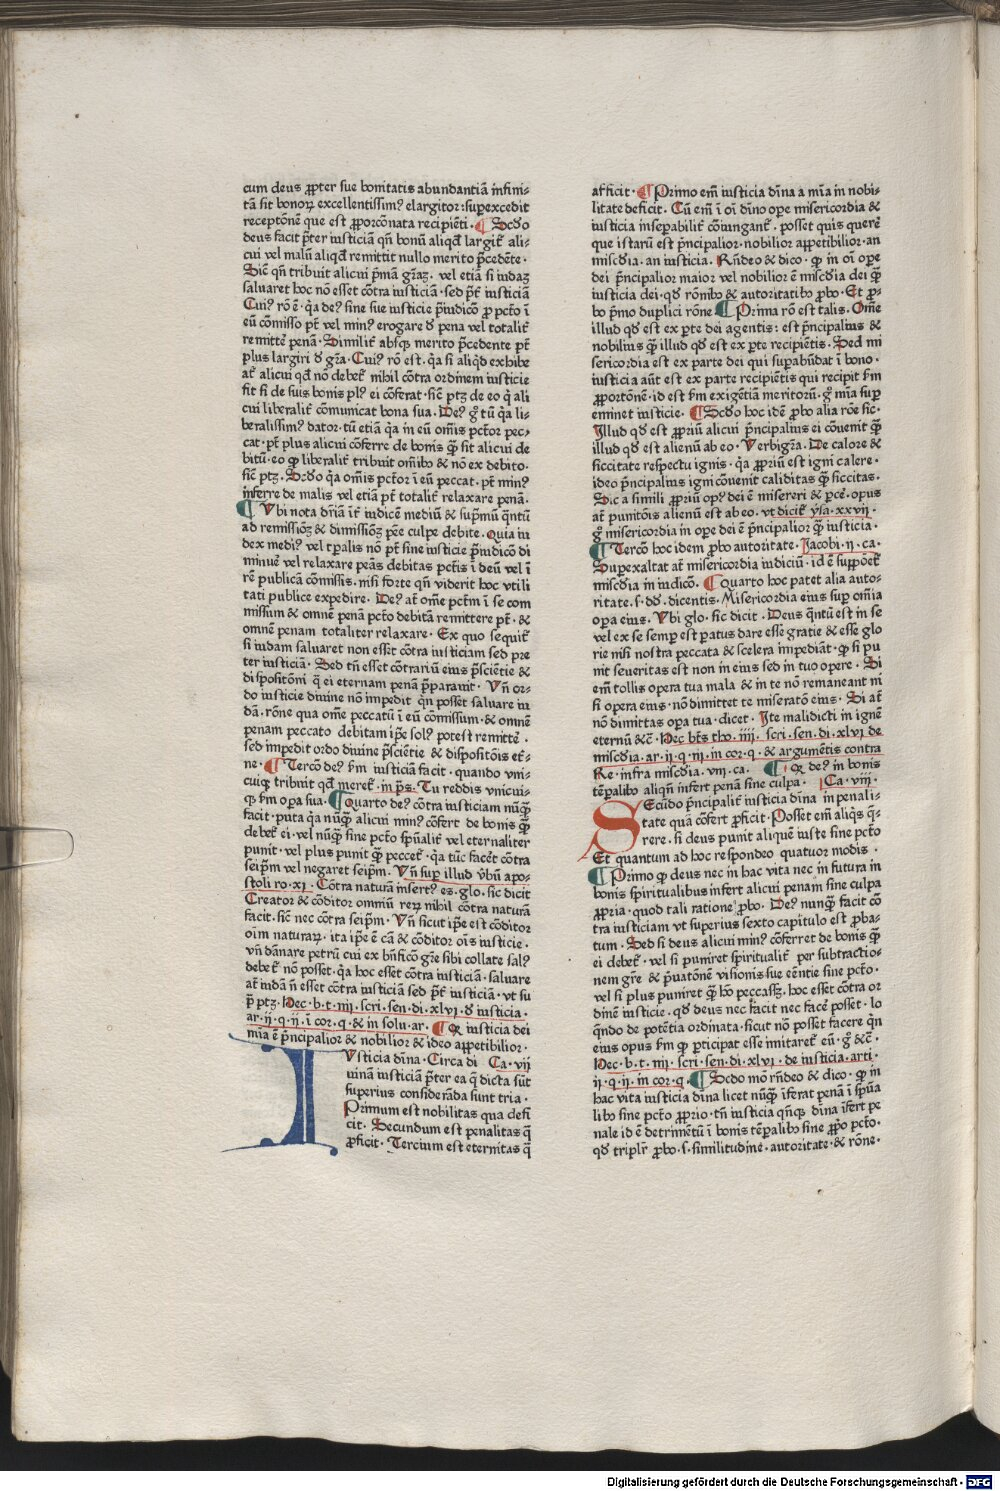 cum deus ꝓpter sue bonitatis abundantiā infini-
tā sit bonoꝝ excellentissimꝰ elargitor: suꝑexcedit
receptōnē que est ꝓporcōnata recipiēti. ¶ Scd̄o
deus facit p̄ter iusticiā qn̄ bonū aliqd̄ largit᷑ ali-
cui vel malū aliqd̄ remittit nullo merito p̄cedēte.
Sic̄ qn̄ tribuit alicui p̄mā gr̄az. vel etiā si iudaz
saluaret hoc nō esset cōtra iusticiā. sed p̄t᷑ iusticiā
Cuiꝰ rō ē. q̇a deꝰ sine sue iusticie p̄iudicō ꝓ pctō ī
eū cōmisso pt̄ vel minꝰ erogare d̄ pena vel totalit᷑
remittē penā. Similit᷑ absqꝫ merito p̄cedente pt̄
plus largiri d̄ gr̄a. Cuiꝰ rō est. q̇a si aliqd̄ exhibe
at᷑ alicui qd̄ nō debet᷑ nihil cōtra ordinem iusticie
fit si de suis bonis plꝰ ei cōferat. sic̄ ptꝫ de eo q̇ ali
cui liberalit᷑ cōmunicat bona sua. Deꝰ gͦ tū q̇a li-
beralissimꝰ dator. tū etiā q̇a in eū om̄is pctōr pec-
cat. pt̄ plus alicui cōferre de bonis qͣꝫ sit alicui de
bitū. eo ꝙ liberalit᷑ tribuit om̄ibꝰ & nō ex debito.
sic̄ ptꝫ. Scd̄o q̇a om̄is pctōr ī eū peccat. pt̄ minꝰ
inferre de malis vel etiā pt̄ totalit᷑ relaxare penā.
¶ Vbi nota dr̄iā īt᷑ iudicē mediū & sup̄mū qn̄tū
ad remissiōꝫ & dimissiōꝫ pēe culpe debite. Quia iu
dex mediꝰ vel tꝑalis nō pt̄ sine iusticie p̄iudicō di
minuē vel relaxare peās debitas pctīs ī deū vel ī
rē publicā cōmissis. nisi forte qn̄ viderit hoc vtili
tati publice expedire. Deꝰ at̄ om̄e pctm̄ ī se com
missum & omnē penā pctō debitā remittere pt̄. &
omnē penam totaliter relaxare. Ex quo sequit᷑
si iudam saluaret non esset cōtra iusticiam sed pre
ter iusticiā. Sed tn̄ esset cōtrariū eius p̄sciētie &
dispositōni q̇ ei eternam penā p̄parauit. Vn̄ or-
do iusticie diuine nō impedit qn̄ posset saluare iu
dā. rōne qua om̄e peccatū ī eū cōmissum. & omnē
penam peccato debitam ip̄e solꝰ potest remittē.
sed impedit ordo diuine p̄sciētie & dispositōis et̄-
ne. ¶ Tercō deꝰ km̄ iusticiā facit. quando vni-
cuiqꝫ tribuit qd̄ meret᷑. in p̄s. Tu reddis vnicui-
qꝫ km̄ oꝑa sua. ¶ Quarto deꝰ cōtra iusticiam nūqͣꝫ
facit. puta q̇a nūqͣꝫ alicui minꝰ cōfert de bonis qͣꝫ
debet᷑ ei. vel nūqͣꝫ sine pctō sp̄ualit᷑ vel eternaliter
punit. vel plus punit qͣꝫ peccet᷑. q̇a tūc facēt cōtra
seip̄m vel negaret seip̄m. Vn̄ suꝑ illud v̄bū apo-
stoli ro. xi. Cōtra naturā insertꝰ es. glo. sic dicit
Creator & cōditor omniū reꝝ nihil cōtra naturā
facit. sic̄ nec cōtra seip̄m. Vn̄ sicut ip̄e est cōditor
oīm naturaꝝ. ita ip̄e ē cā & cōditor oīs iusticie.
vn̄ dānare petrū cui ex bn̄ficō gr̄e sibi collate salꝰ
debet᷑ nō posset. q̇a hoc esset cōtra iusticiā. saluare
at᷑ iudā n̄ esset cōtra iusticiā sed p̄t᷑ iusticiā. vt su
p̄ ptꝫ. Hec. b. t. iiii. scri. sen. di. xlvi. d̄ iusticia.
ar. ii. q. ii. ī cor. q. & in solu. ar. ¶ Qꝫ iusticia dei
mīa ē p̄ncipalior & nobilior & ideo appetibilior.
Vsticia dīna. Circa di Ca. vii
uinā iusticiā p̄ter ea q̄ dicta sūt
superius considerāda sunt tria.
Primum est nobilitas qua defi
cit. Secundum est penalitas q̄
ꝓficit. Tercium est eternitas q̄
afficit. ¶ Primo em̄ iusticia dīna a mīa in nobi-
litate deficit. Cū em̄ ī oī dīno oꝑe misericordia &
iusticia inseꝑabilit᷑ cōiungant᷑. posset quis querē
que istarū est p̄ncipalior. nobilior appetibilior. an
miscd̄ia. an iusticia. Rn̄deo & dico. ꝙ in oī oꝑe
dei p̄ncipalior maior vel nobilior ē miscd̄ia dei qͣꝫ
iusticia dei. qd̄ rōnibꝰ & autoritatibꝰ ꝓbo. Et ꝓ-
bo p̄mo duplici rōne ¶ Prima rō est talis. Om̄e
illud qd̄ est ex ꝑte dei agentis: est p̄ncipalius &
nobilius qͣꝫ illud qd̄ est ex ꝑte recipiētis. Sed mi
sericordia est ex parte dei qui suꝑabūdat ī bono.
iusticia aūt est ex parte recipiētis qui recipit km̄
ꝓportōnē. id est km̄ exigētiā meritorū. gͦ mīa suꝑ
eminet iusticie. ¶ Scd̄o hoc idē ꝓbo alia rōe sic.
Illud qd̄ est ꝓpriū alicui p̄ncipalius ei cōuenit qͣꝫ
illud qd̄ est alienū ab eo. Verbigr̄a. De calore &
siccitate respectu ignis. q̇a ꝓpriū est igni calere.
ideo p̄ncipalius igni cōuenit caliditas qͣꝫ siccitas.
Sic a simili ꝓpriū opꝰ dei ē misereri & ꝑcē. opus
at᷑ punitōis alienū est ab eo. vt dicit᷑ ysa. xxvii.
gͦ misericordia in oꝑe dei ē p̄ncipalior qͣꝫ iusticia.
¶ Tercō hoc idem ꝓbo autoritate. Jacobi. ii. ca.
Suꝑexaltat at᷑ misericordia iudiciū. id ē suꝑponēt᷑
miscd̄ia in iudicō. ¶ Quarto hoc patet alia auto-
ritate. s. dd̄. dicentis. Misericordia eius suꝑ om̄ia
oꝑa eius. Vbi glo. sic dicit. Deus qn̄tū est in se
vel ex se semꝑ est ꝑatus dare esse gratie & esse glo
rie nisi nostra peccata & scelera impediāt. ꝙ si pu
nit seueritas est non in eius sed in tuo opere. Si
em̄ tollis opera tua mala & in te nō remaneant ni
si opera eius. nō dimittet te miseratō eius. Si at᷑
nō dimittas oꝑa tua. dicet. Ite maledicti in ignē
eternū &c̄. Hec bt̄s tho. iiii. scri. sen. di. xlvi de
miscd̄ia. ar. ii. q. iii. in cor. q. & argumētis contra
Re. infra miscd̄ia. viii. ca. ¶ Qꝫ deꝰ in bonis
tēꝑalibꝰ aliqn̄ infert penā sine culpa. Ca. viii.
SEcūdo p̄ncipalit᷑ iusticia dīna in penali-
tate quā cōfert ꝓficit. Posset em̄ aliqͥs q̄-
rere. si deus punit aliquē iuste sine pctō
Et quantum ad hoc respondeo quatuor modis.
¶ Primo ꝙ deus nec in hac vita nec in futura in
bonis spiritualibus infert alicui penam sine culpa
ꝓpria. quod tali ratione ꝓbo. Deꝰ nunqͣꝫ facit cō
tra iusticiam vt superius sexto capitulo est ꝓba-
tum. Sed si deus alicui minꝰ cōferret de bonis qͣꝫ
ei debet᷑. vel si puniret spiritualit᷑ per subtractio-
nem gr̄e & p̄uatōnē visionis sue eēntie sine pctō.
vel si plus puniret qͣꝫ hō peccassꝫ. hoc esset cōtra or
dinē iusticie. qd̄ deus nec facit nec facē posset. lo
quendo de potētia ordinata. sicut nō posset facere qn̄
eius opus km̄ ꝙ ꝑticipat esse imitaret᷑ eū. gͦ &c̄.
Hec. b. t. iiii. scri. sen. di. xlvi. de iusticia. arti.
ii. q. ii. in cor. q. ¶ Scdo mō rn̄deo & dico. ꝙ in
hac vita iusticia dīna licet nūqͣꝫ īferat penā ī sp̄ua
libꝰ sine pctō ꝓprio. tn̄ iusticia qn̄qꝫ dīna īfert pe
nale id ē detrimētū ī bonis tēꝑalibꝰ sine ꝓpō pctō.
qd̄ triplr̄ ꝓbo. s. similitudine. autoritate. & rōne.